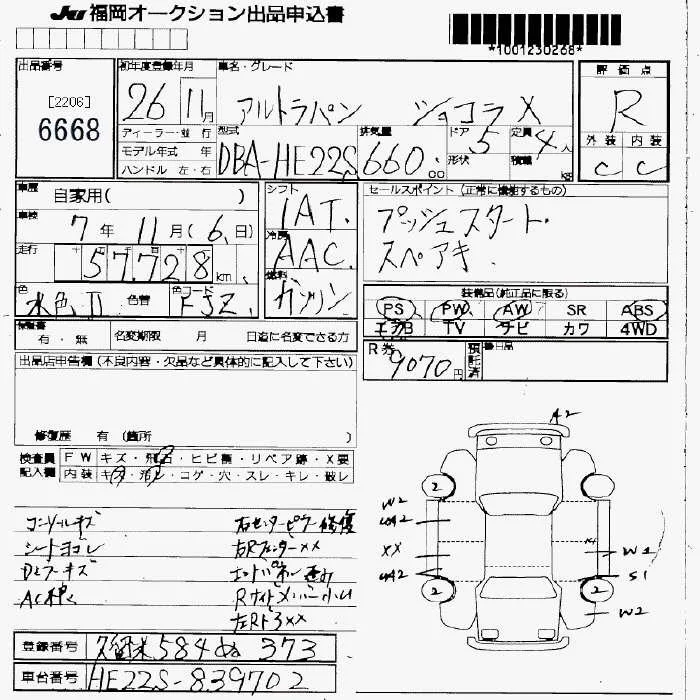 JU 福岡オークション出品申込書
*1001230268*
出品番号
[2206]
6668
初年度登録年月
26 11月
車名・グレード
アルトラパン ショコラX
評価点
R
外装 内装
C C
ディーラー・並行
モデル年式 年
ハンドル 左・右
型式
DBA-HE22S
排気量
660.00
ドア 5
形状
定員 4人
積載 KG
車歴
自家用( )
車検
7年 11月(6日)
走行
十 万 千 百 十
57,728km
シフト
1AT.
冷房
AAC.
燃料
ガソリン
セールスポイント(正常に機能するもの)
プッシュスタート.
スペアキ.
色
水色II
色替
色コード
FJZ.
装備品(純正品に限る)
PS PW AW SR ABS
エアB TV ナビ カワ 4WD
保証書
有・無
名変期限 月 日迄に名変できる方
R券
9070円
預託済
後日品
出品店申告欄(不良内容・欠品など具体的に記入して下さい)
修復歴 有(箇所 )
検査員記入欄
FW キズ・飛石・ヒビ割・リペア跡・X要
内装 キズ・汚れ・コゲ・穴・スレ・キレ・破レ
コンソールキズ
シートヨゴレ
Dドアーキズ
右センターピラー修復
右Rフェンダーxx
エンドパネル歪み
左Rドアxx
A2
2 2
W2
UA2
XX
UA2
W1
S1
2 2
W2
登録番号
久留米 584 ぬ 373
車台番号
HE22S-839702